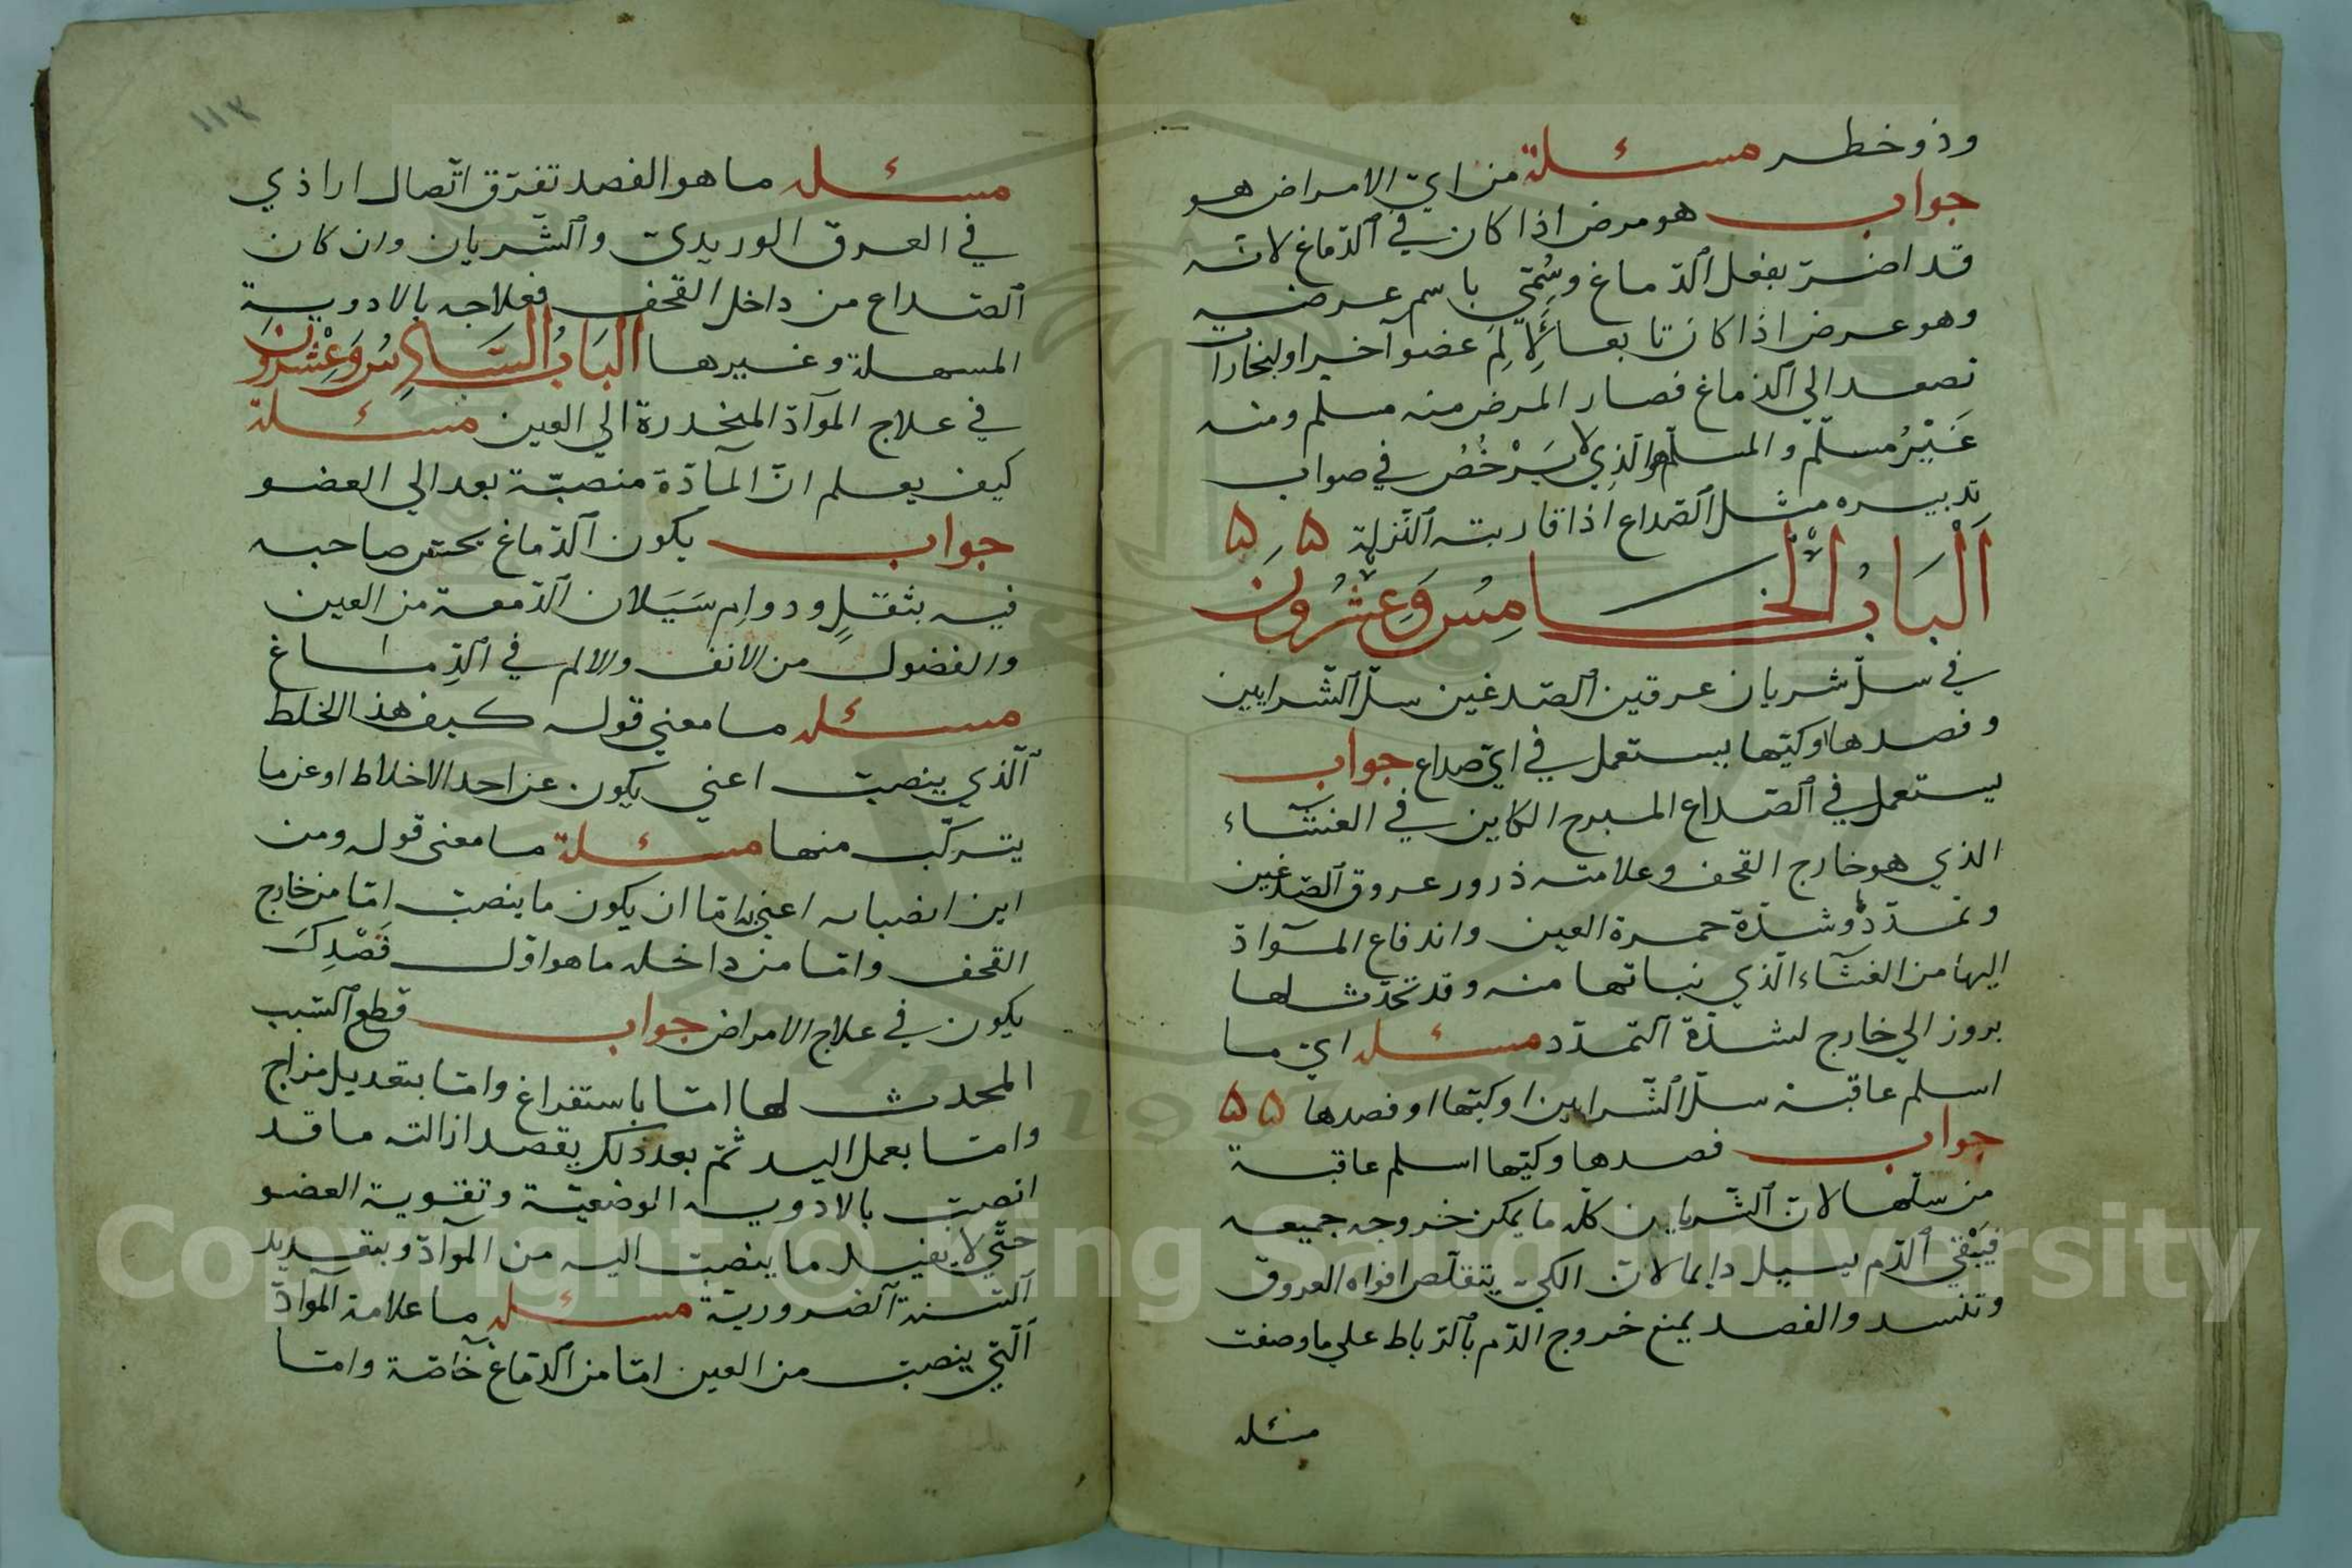 وذو خطر مسئلة من اي الامراض هو
جواب هو مرض اذا كان في الدماغ لانه
قد اضر بفعل الدماغ وسُمّي باسم عرضه
وهو عرض اذا كان تابعا لألم عضو آخر او لبخارات
تصعد الي الدماغ فصار المرض منه مسلم ومنه
غَيْرُ مسلّم والمسلم هو الذي لا يَرْخُصُ في صواب
تدبيره مثل الصداع اذا قاربته النزلة ۵ ۵
اَلْبَابُ الْخَامِسُ وَعِشْرُونَ
في سلّ شريان عرقين الصدغين سلّ الشرايين
وفصدها وكيّها يستعمل في ايّ صداع جواب
يستعمل في الصداع المبرح الكاين في الغشاء
الذي هو خارج القحف وعلامته درور عروق الصدغين
وتمدّد وشدّة حمرة العين واندفاع الموادّ
اليها من الغشاء الذي نباتها منه وقد تحدث لها
بروز الي خارج لشدّة التمدّد مسئله اي ما
اسلم عاقبة سلّ الشرايين او كيّها او فصدها ۵۵
جواب فصدها وكيّها اسلم عاقبة
من سلّها لان الشريان كلّه ما يمكن خروجه جميعه
فَيَبْقي الدم يسيل دايما لان الكي يتقلّص افواه العروق
وتنسد والفصد يمنع خروج الدّم بالرباط علي ما وصفت
مسئله
١١٣
مسئله ما هو الفصد تفرّق اتّصال ارادي
في العرق الوريدي والشريان وان كان
الصداع من داخل القحف فعلاجه بالادوية
المسهلة وغيرها اَلْبَابُ السَّادِسُ وَعِشْرُونَ
في علاج الموادّ المنحدرة الي العين مسئلة
كيف يعلم انّ المآدّة منصبّة بعد الي العضو
جواب يكون الدماغ يحسّ صاحبه
فيه بثقلٍ ودوامِ سَيَلان الدّمعة من العين
والفضول من الانف والالم في الدِماغ
مسئله ما معني قوله كيف هذ الخلط
الّذي ينصبّ اعني يكون عن احد الاخلاط او عن ما
يتركّب منها مسئلة ما معنى قوله ومن
اين انصبابه اعني به امّا ان يكون ما ينصبّ امّا من خارج
القحف وامّا من داخله ما هو اوّل قَصْدِكَ
يكون في علاج الامراض جواب قطع السّبب
المحدث لها امّا باستفراغ وامّا بتعديل مزاج
وامّا بعمل اليد ثمّ بعد ذلك يقصد ازالته ما قد
انصبّ بالادويه الوضعيّة وتقوية العضو
حتّي لا يقبل ما ينصبّ اليه من الموادّ وبتقدير
الستة الضرورية مسئله ما علامة الموادّ
الّتي ينصبّ من العين امّا من الدّماغ خآصّة وامّا